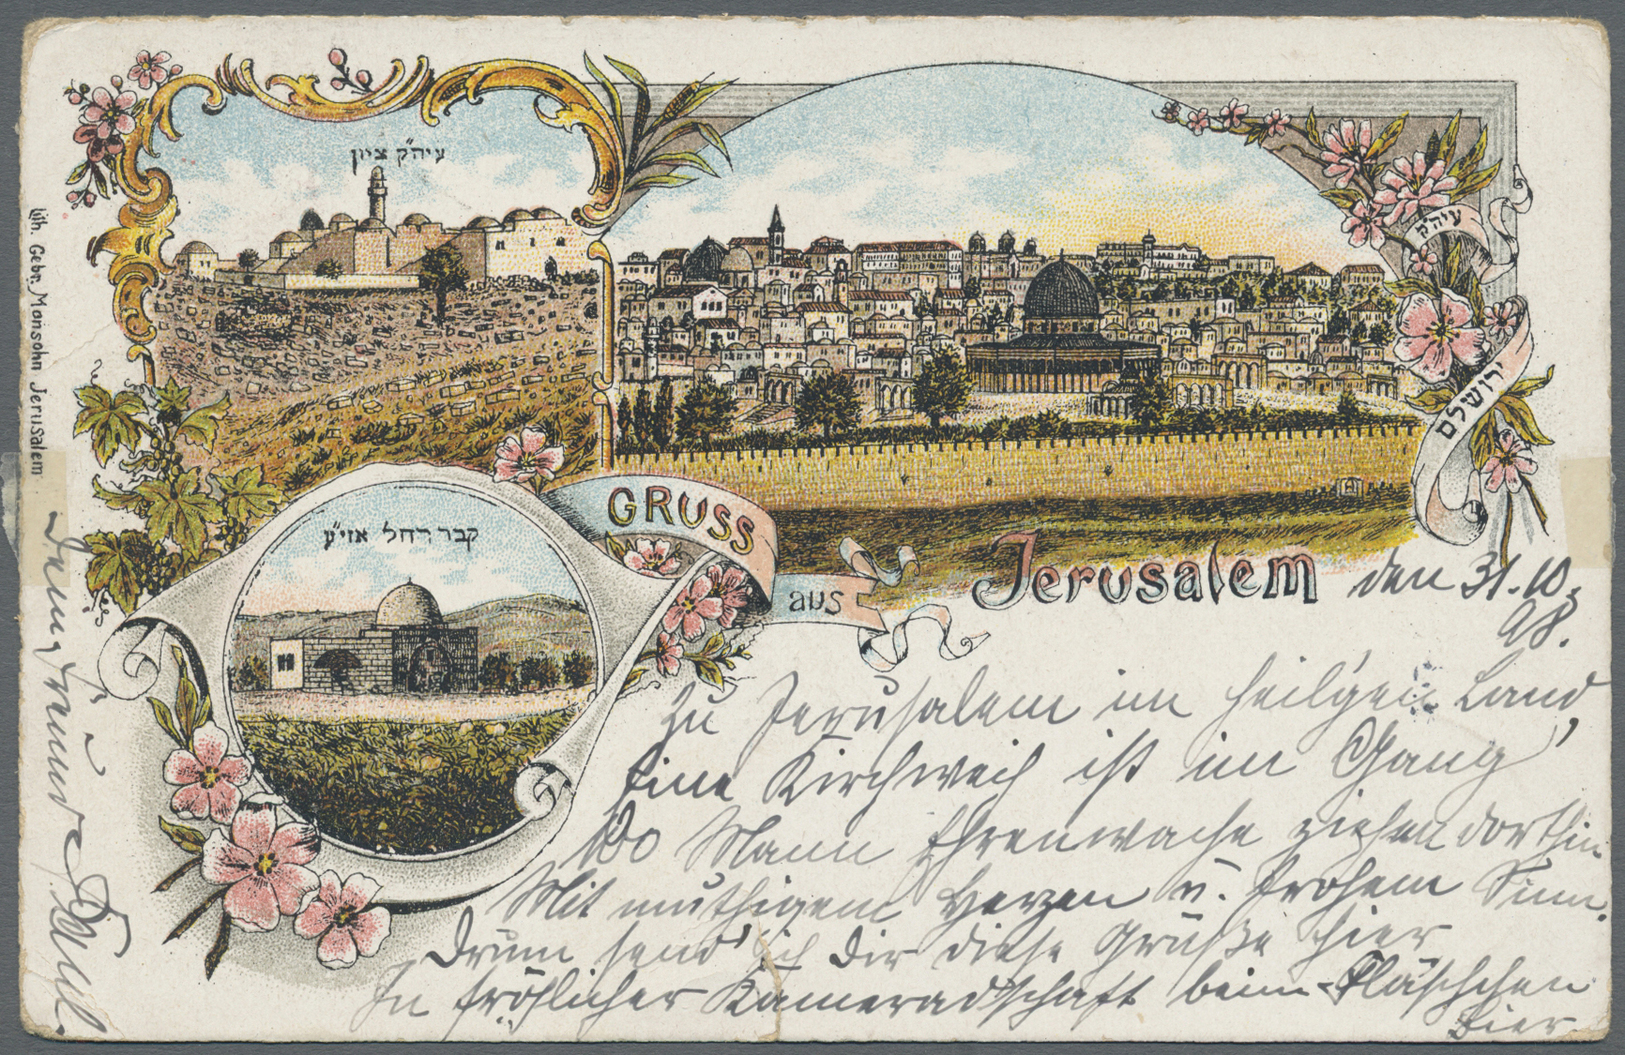 עיה"ק ציון
עיה"ק
ירושלם
קבר רחל אזי"ע
GRUSS
aus
Jerusalem
den 31.10.
98.
Zu Jerusalem im heil'gen Land,
Eine Kirchweih ist im Gang
100 Mann Ehrenwache ziehen dorthin
Mit muthigem Herzen u. frohem Sinn.
Drum send' ich dir diese Grüße hier
In fröhlicher Kameradschaft beim Fläschchen
Bier.
Dein Freund Paul.
Lith. Gebr. Monsohn Jerusalem